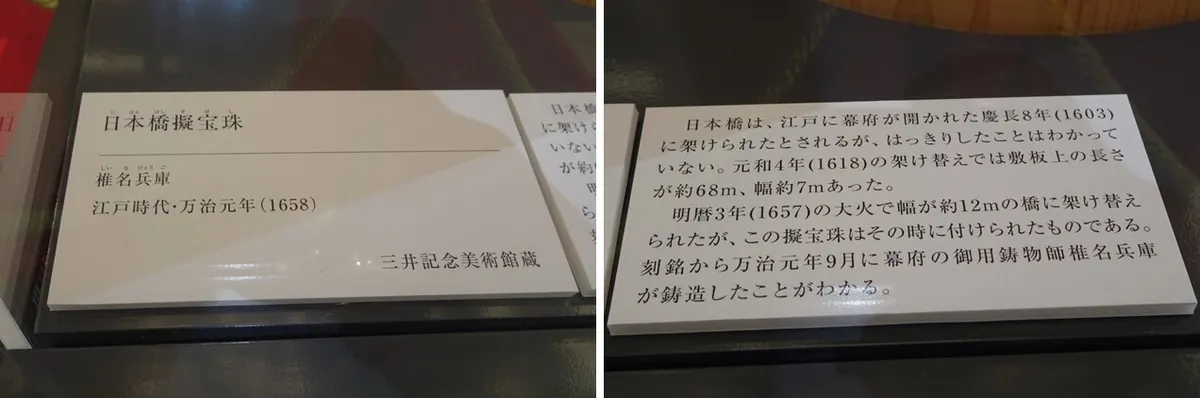 日
にほんばしぎぼし
日本橋擬宝珠
しいなひょうご
椎名兵庫
江戸時代・万治元年(1658)
三井記念美術館蔵
日本橋
に架けら
いない
が約
明
られ
刻
日本橋は、江戸に幕府が開かれた慶長8年(1603)
に架けられたとされるが、はっきりしたことはわかって
いない。元和4年(1618)の架け替えでは敷板上の長さ
が約68m、幅約7mあった。
明暦3年(1657)の大火で幅が約12mの橋に架け替え
られたが、この擬宝珠はその時に付けられたものである。
刻銘から万治元年9月に幕府の御用鋳物師椎名兵庫
が鋳造したことがわかる。